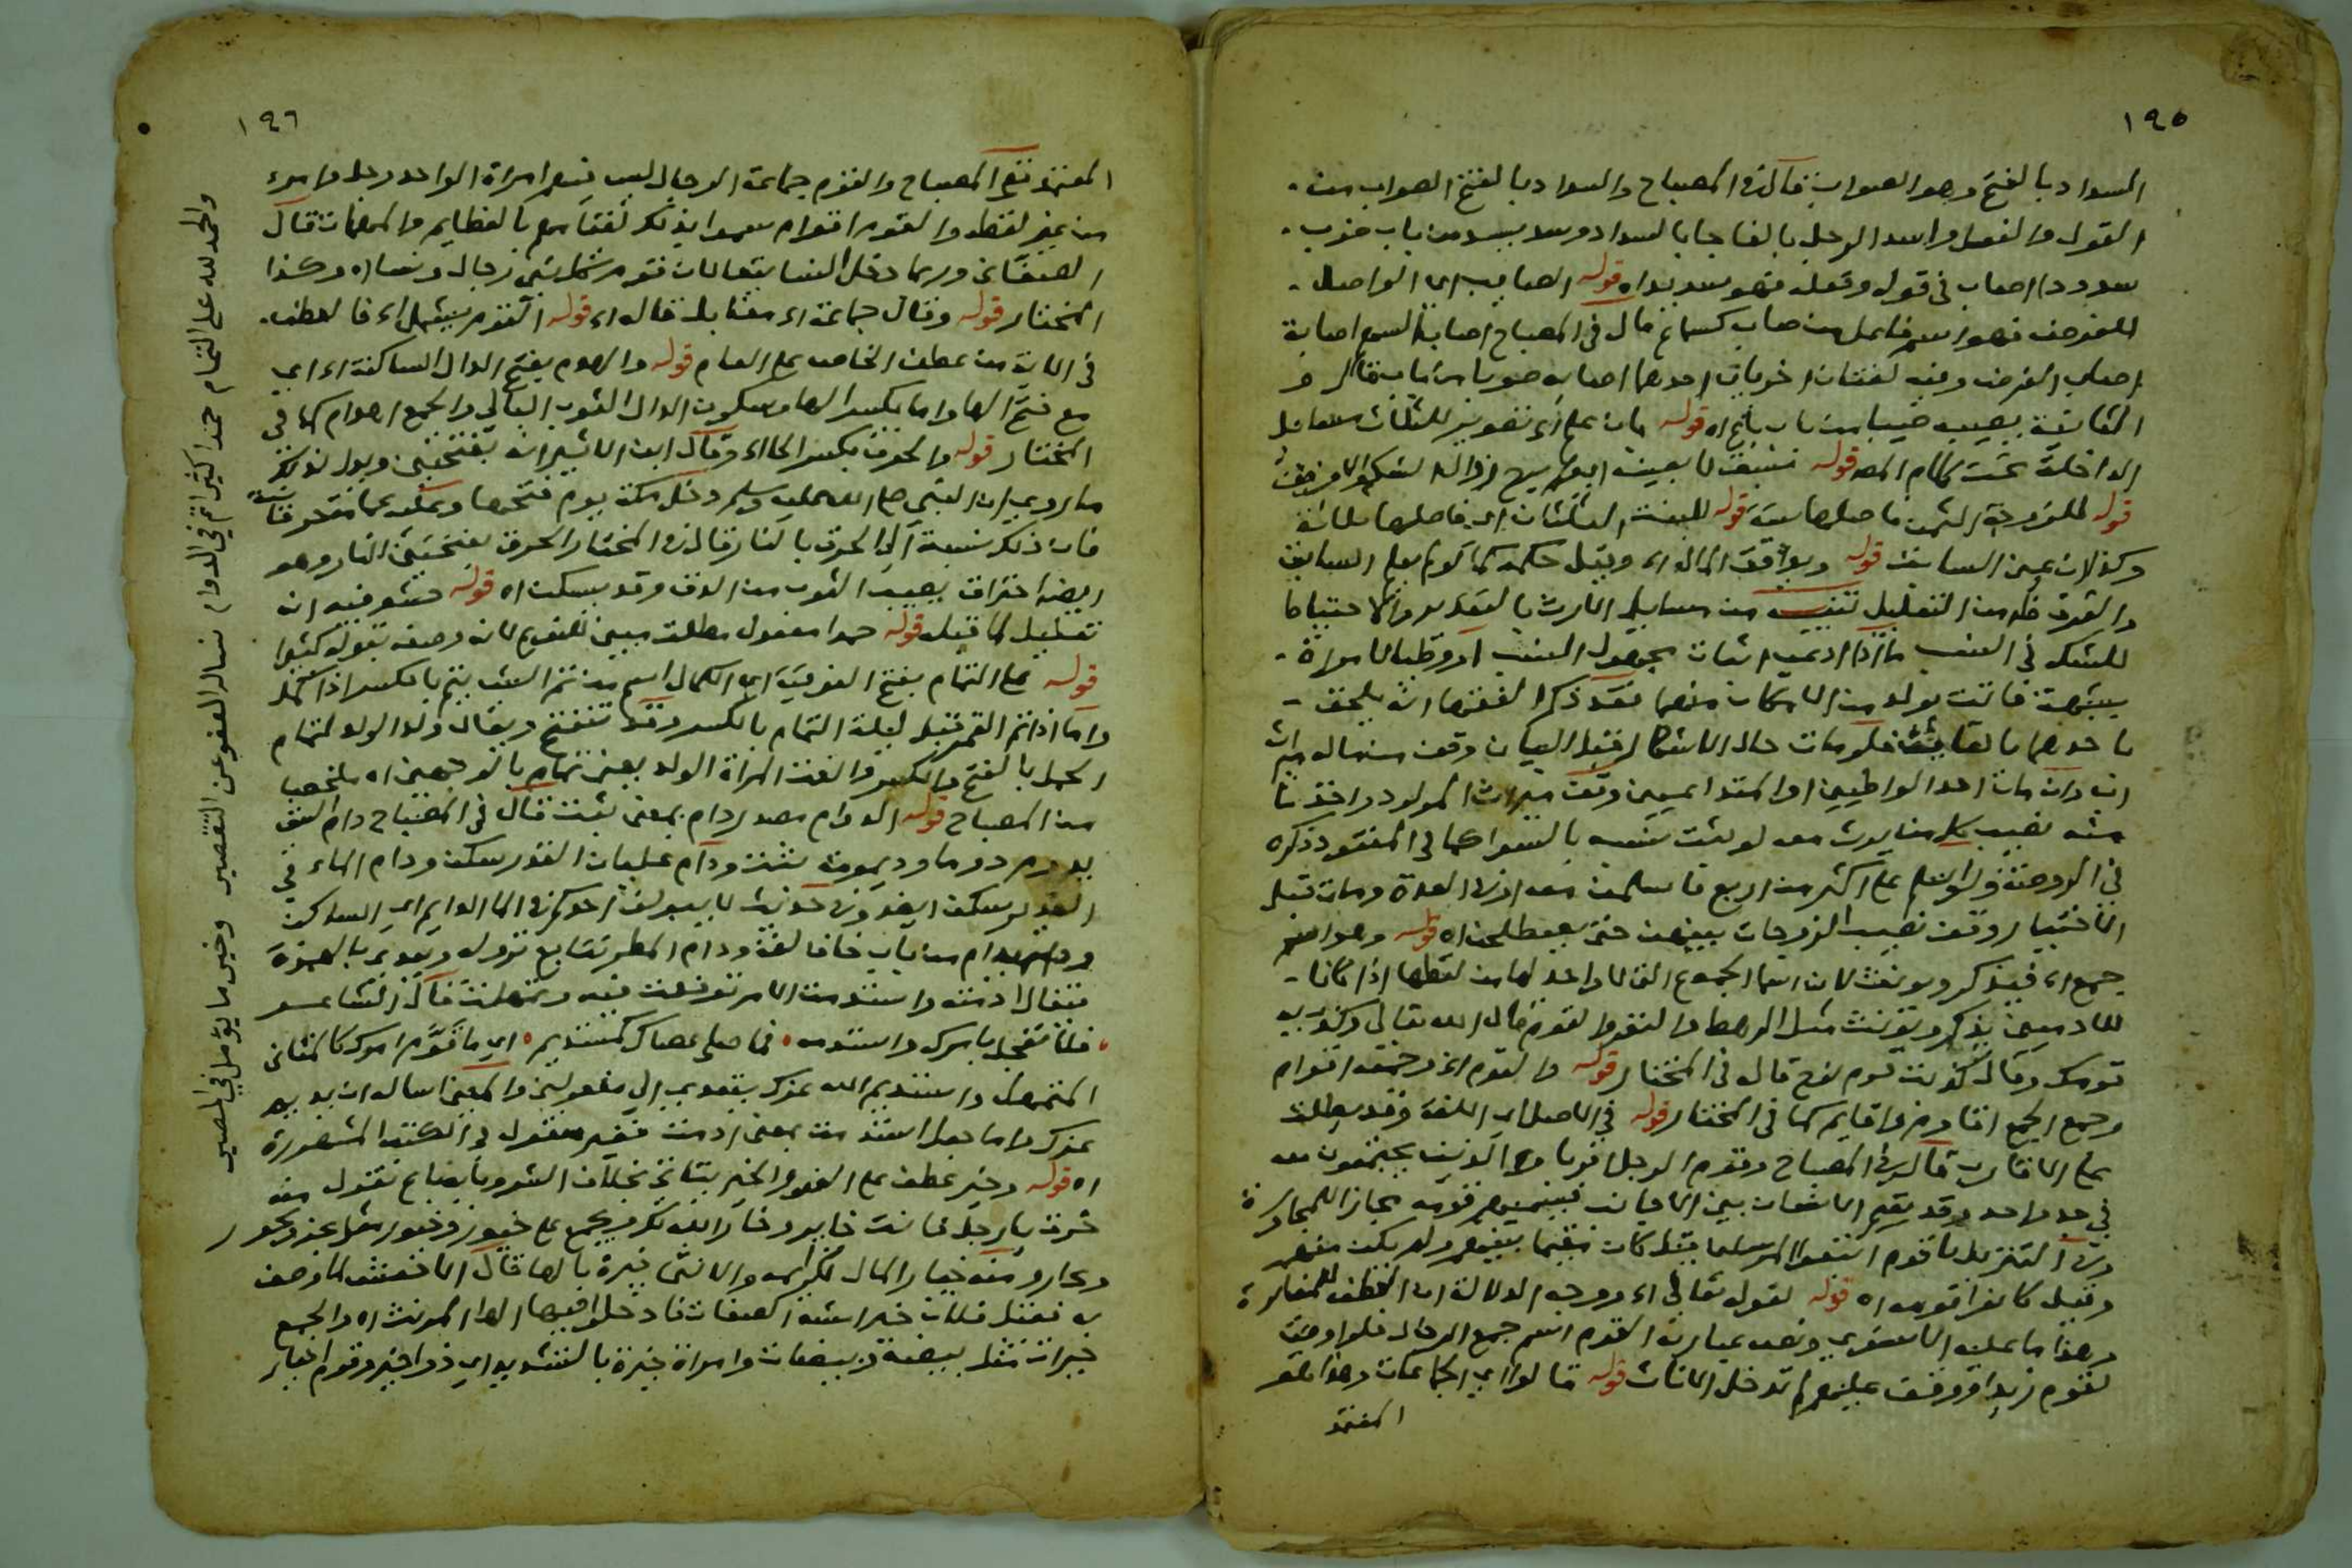 ١٩٥
السداد بالفتح وهو الصواب قال في المصباح والسداد بالفتح الصواب من
القول والفعل واسد الرجل بالفا جا بالسداد وسد يسد من باب ضرب
سدودا اصاب في قوله وفعله فهو سديد اه قوله الصايب اي الواصل
للغرض فهو اسم فاعل من صاب كسماع قال في المصباح اصاب السهم اصابة
اصاب الغرض وفيه لغتان اخريان احدهما اصابه صوبا من باب قال و
الثانية يصيبه صيبا من باب باع اه قوله
الداخلة تحت كلام المص قوله
قوله للزوجة الثمن قوله للبنت الثلثان
السابق قوله
والفرق من التعليل تتمة من مسايل الارث بالتقدير والاحتياط
للشك في النسب ما اذا ادعى اثنان مجهول النسب او وطيا امراة
بشبهة فاتت بولد من الامكان منهما
باحدهما بالقايف
مات احد الواطيين او المتداعيين وقف ميراث المولود واخذنا
كما في المفقود ذكره
في الروضة ولو اسلم على اكثر من اربع فاسلمن معه او في العدة ومات قبل
الاختيار وقف نصيب الزوجات بينهن حتى يصطلحن اه قوله وهو اسم
جمع اه فيذكر ويونث لان اسما الجموع التي لا واحد لها من لفظها اذا كانت
للادميين يذكر ويونث مثل الرهط والنفر والقوم قال الله تعالى وكذب به
قومك وقال كذبت قوم نوح قاله في المختار قوله والقوم اه وجمعه اقوام
وجمع الجمع اقاوم واقايم كما في المختار قوله في الاصل اي اللغة وقد يطلق
على الاقارب قال في المصباح وقوم الرجل اقربا وه الذين يجتمعون معه
في جد واحد وقد يقيم الانسان بين الاجانب فيسميهم قومه مجازا للمجاورة
وفي التنزيل يا قوم اتبعوا المرسلين قيل كان مقيما بينهم ولم يكن منهم
وقيل كانوا قومه اه قوله لقوله تعالى اه ووجه الدلالة ان العطف للمغايرة
وهذا ما عليه الاسنوي ونص عبارته القوم اسم جمع الرجال فلو اوصى
لقوم زيد او وقف عليهم لم تدخل الاناث قوله
المعتمد
١٩٦
المعتمد ففي المصباح والقوم جماعة الرجال ليس فيهم امراة الواحد رجل وامرء
من غير لفظه والقوم اقوام سموا بذلك لقيامهم بالعظايم والمهمات قال
الصغاني وربما دخل النسا تبعا لان قوم كل نبي رجال ونسا اه وكذا
المختار قوله وقال جماعة اه مقابل قاله اه قوله القوم يشمل اه فالعطف
في الاية من عطف الخاص على العام قوله والهدم بفتح الدال الساكنة اه اي
مع فتح الها واما بكسر الها وسكون الدال الثوب البالي والجمع اهدام كما في
المختار قوله والحرق بكسر الحا اه وقال ابن الاثير انه بفتحتين
ما روي ان النبي صلى الله عليه وسلم دخل مكة يوم فتحها وعليه عمامة حرقانية
فان ذلك نسبة الى الحرق بالنار قال في المختار الحرق بفتحتين النار وهو
ايضا احتراق يصيب الثوب من الدق وقد يسكن اه قوله
تعليل لما قبله قوله حمدا مفعول مطلق مبين للنوع لانه وصف بقوله كثيرا
قوله على التمام بفتح الفوقية اي الكمال اسم من تم الشي يتم بالكسر اذا تكمل
واما اذا تم القمر قيل ليلة التمام بالكسر وقد تفتح ويقال ولد الولد لتمام
الحمل بالفتح والكسر والقت المراة الولد بغير تمام بالوجهين اه ملخصا
من المصباح قوله الدوام مصدر دام بمعنى ثبت قال في المصباح دام الشي
يدوم دوما وديمومة ثبت ودام غليان القدر سكن ودام الماء في
الغدير سكن ايضا وفي حديث لا يبولن احدكم في الما الدايم اي الساكن
ودام يدام من باب خاف لغة ودام المطر تتابع نزوله ويعدى بالهمزة
فيقال ادمته واستدمت الامر ترفقت فيه وتمهلت قال الشاعر
فلا تعجل بامرك واستدمه فما صلى عصاك كمستديم اي ما قوم امرك كالمتاني
المتمهل واستديم الله عزك يتعدى الى مفعولين والمعنى اساله ان يديم
عزك واما جعل استدمت بمعنى ادمت فغير منقول في الكتب المشهورة
اه قوله وخير عطف على العفو والخير بخلاف الشر تقول منه
خرت يا رجل فانت خاير وخار الله لك ويجمع على خيور وخيار مثل بحر وبحور
وبحار ومنه خيار المال لكرايمه والانثى خيرة بالها قال الاخفش لما وصف
به فقيل فلان خير اشبه الصفات فادخلوا فيها الها للمونث اه والجمع
خيرات مثل بيضة وبيضات وامراة خيرة بالتشديد اي ذو خير وقوم اخيار
والحمد لله على التمام حمدا كثيرا تم في الدوام نساله العفو عن التقصير وخير ما يؤمل في المصير